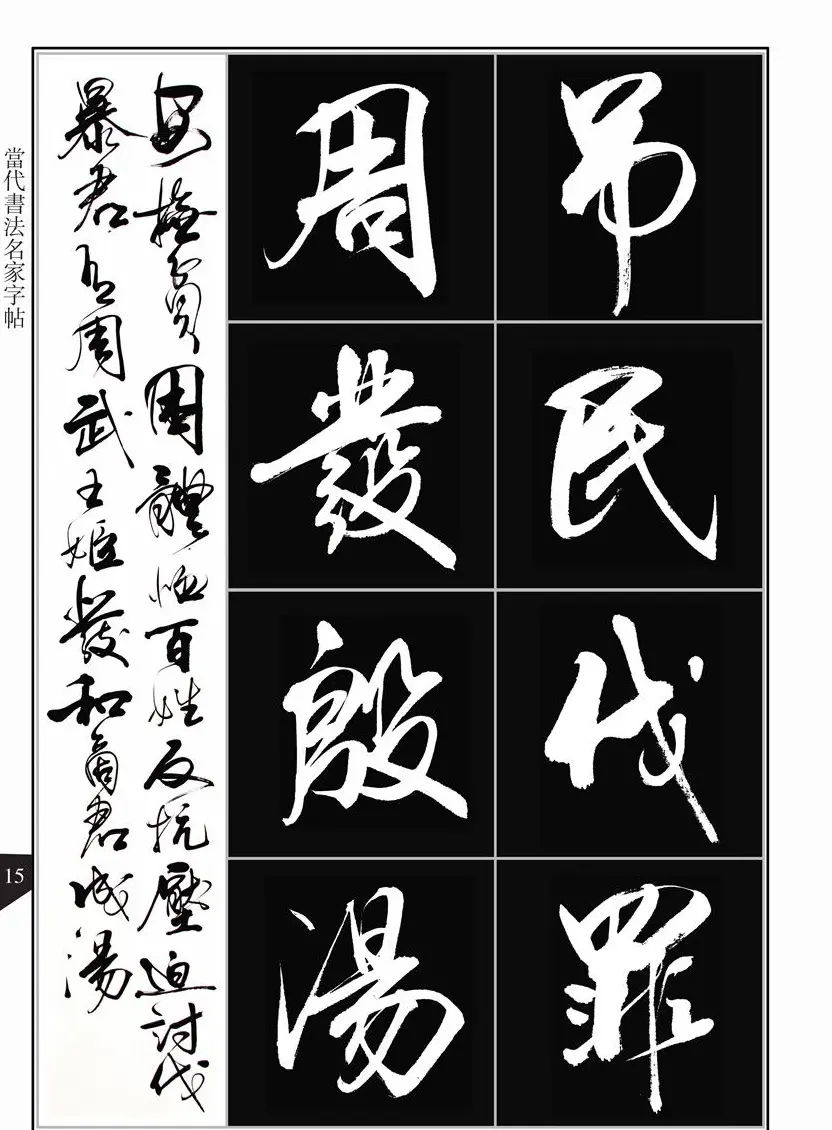 吊民伐罪
周發殷湯
撫貧困體恤百姓反抗壓迫討伐
暴君有周武王姬發和商君成湯
當代書法名家字帖
15